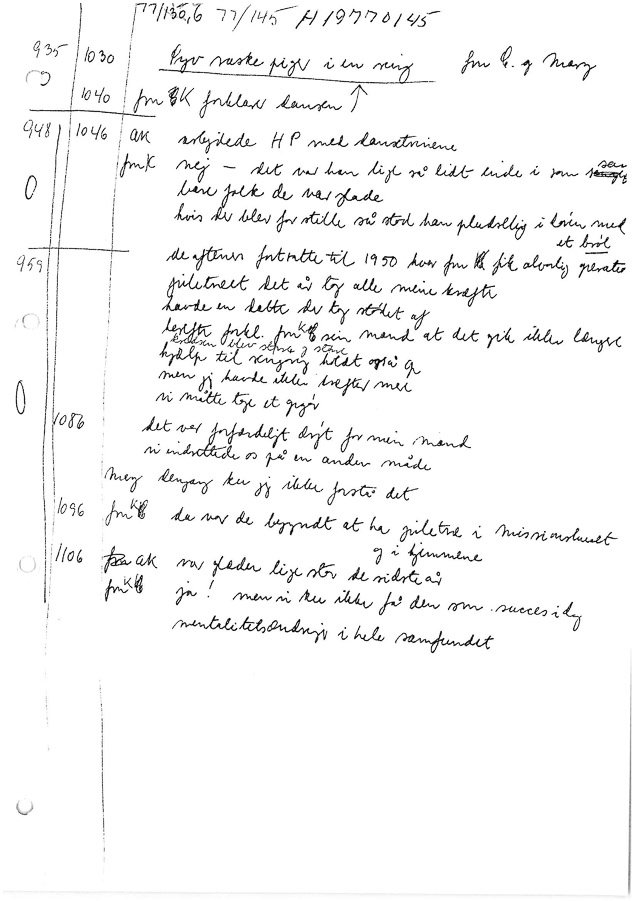 77/130,6 77/145 H19770145
935 1030 Tyv raske piger i en ring fru E. og Mary
1040 fru K forklarer dansen ↑
948 1046 AK arbejdede HP med dansetrinene
fru K nej – det var han lige så lidt inde i som
bare folk de var glade
hvis der blev for stille så stod han pludselig i døren med
et brøl
959 de aftener fortsatte til 1950 hvor fru K fik alvorlig
juletræet det år tog alle mine kræfter
havde en datter der tog stødet af
derefter forkl. fru K sin mand at det gik ikke længere
kredsen blev større og større
hjælp til rengøring holdt også op
men jeg havde ikke kræfter mer
vi måtte tage et
1086 det var forfærdeligt drøjt for min mand
vi indrettede os på en anden måde
Mary dengang ku jeg ikke forstå det
1096 fru K da var de begyndt at ha juletræ i missionshuset
og i hjemmene
1106 AK var glæden lige stor de sidste år
fru K ja! men vi ku ikke få den som succes i dag
mentalitetsændringer i hele samfundet